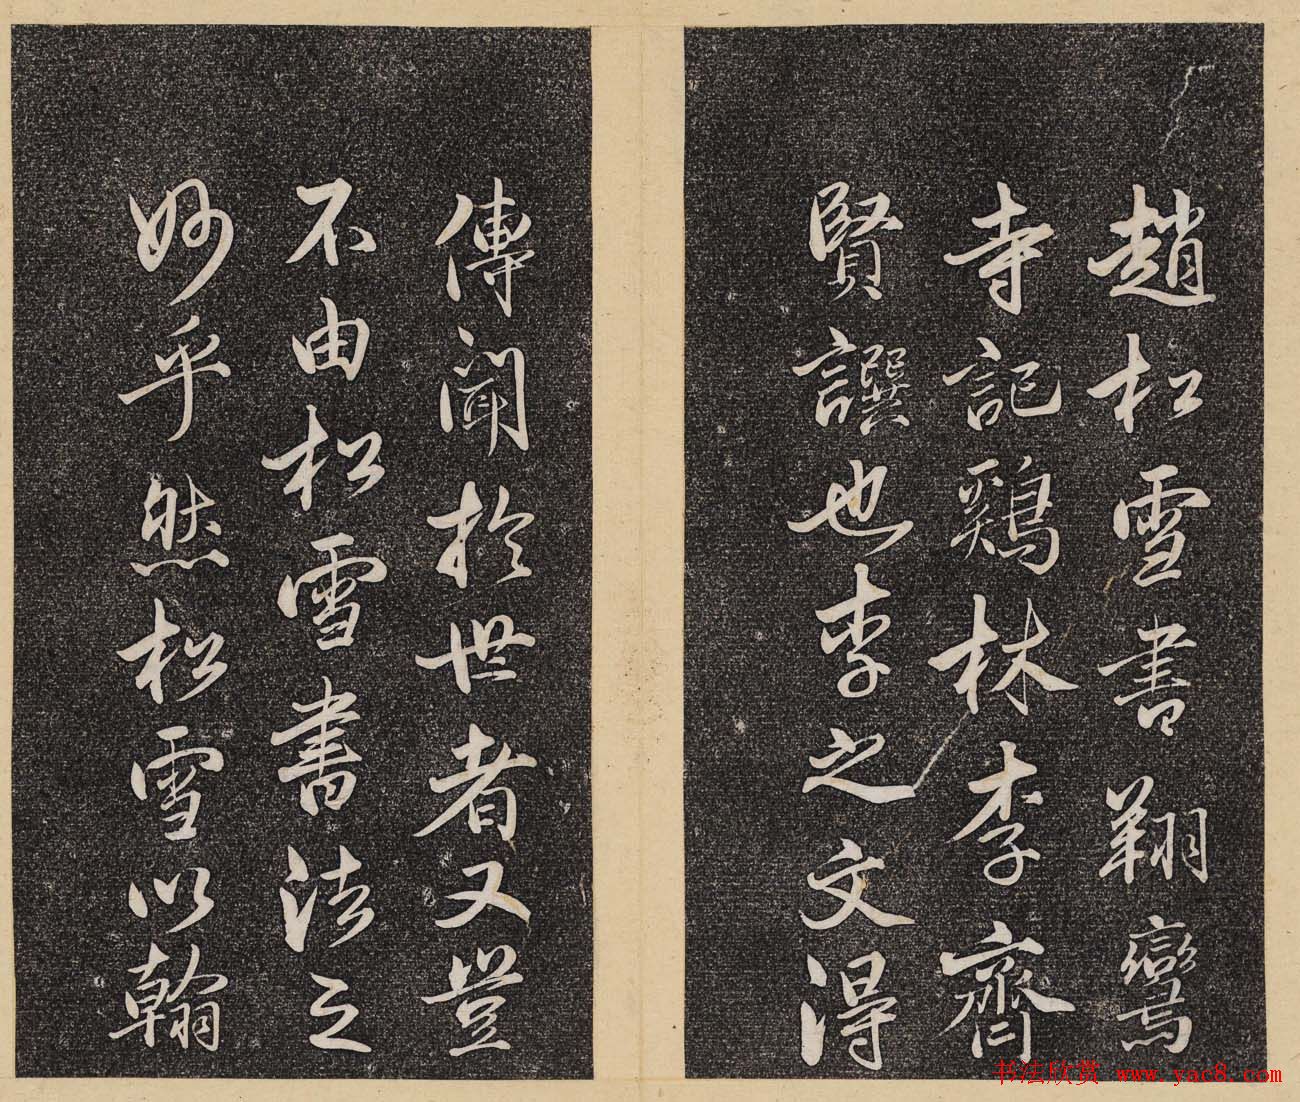 趙松雪書翔鸞
寺記鷄林李齊
賢譔也李之文得
傳聞於世者又豈
不由松雪書法之
妙乎然松雪以翰
书法欣赏 www.yac8.com